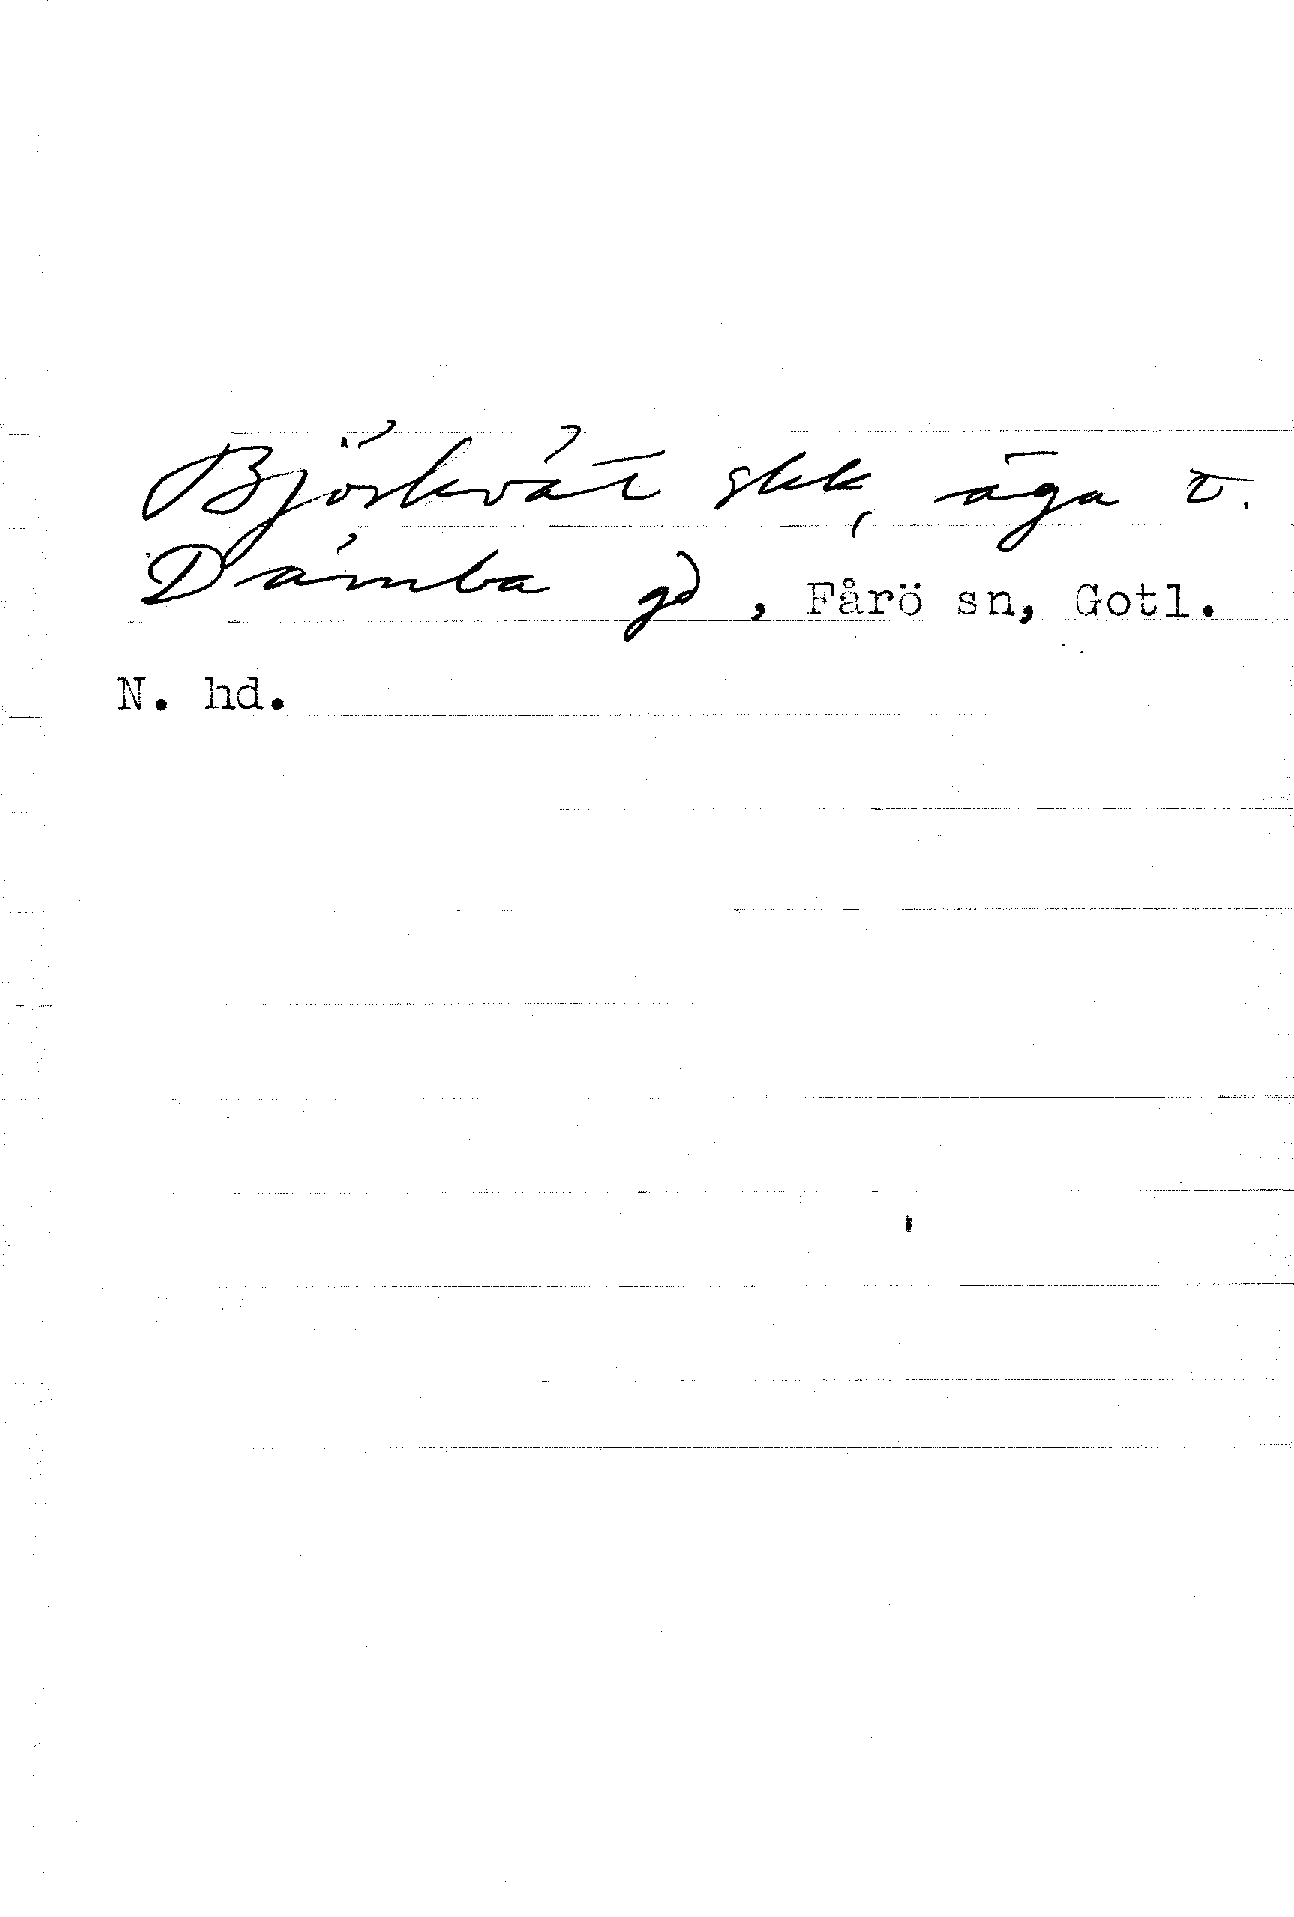 Björkvät skk, äga t.
Dämba gd, Fårö sn, Gotl.
N. hd.